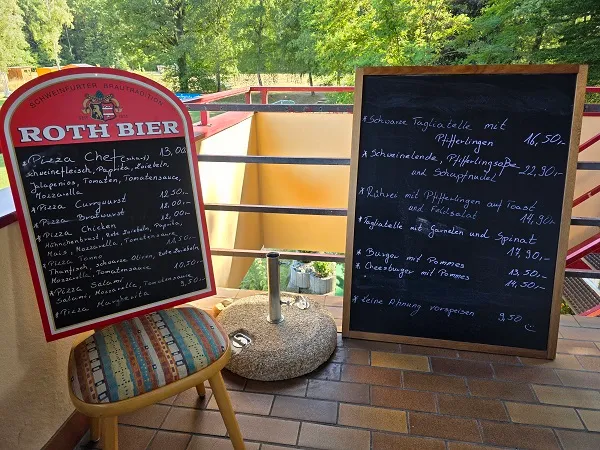 SCHWEINFURTER BRAUTRADITION
ROTH BIER
*Pizza Chef (scharf) 13,00
Schweinefleisch, Paprika, Zwiebeln
Jalapenios, Tomaten, Tomatensauce,
Mozzarella
*Pizza Currywurst 12,50
*Pizza Bratwurst 12,00
*Pizza Chicken 12,00
Hühnchenbrust, rote Zwiebeln, Paprika,
Mais, Mozzarella, Tomatensauce
*Pizza Tonno 11,50
Thunfisch, schwarze Oliven, rote Zwiebeln
Mozzarella, Tomatensauce
*Pizza Salami 10,50
Salami, Mozzarella, Tomatensauce
*Pizza Margherita 9,50
*Schwarze Tagliatelle mit
Pfifferlingen 16,50,-
*Schweinelende, Pfifferlingsoße
und Schupfnudel 22,90,-
*Rührei mit Pfifferlingen auf Toast
und Feldsalat 14,90,-
*Tagliatelle mit Garnelen und Spinat
17,90,-
*Burger mit Pommes 13,50,-
*Cheesburger mit Pommes 14,50,-
*Keine Ahnung vorspeisen 9,50,-